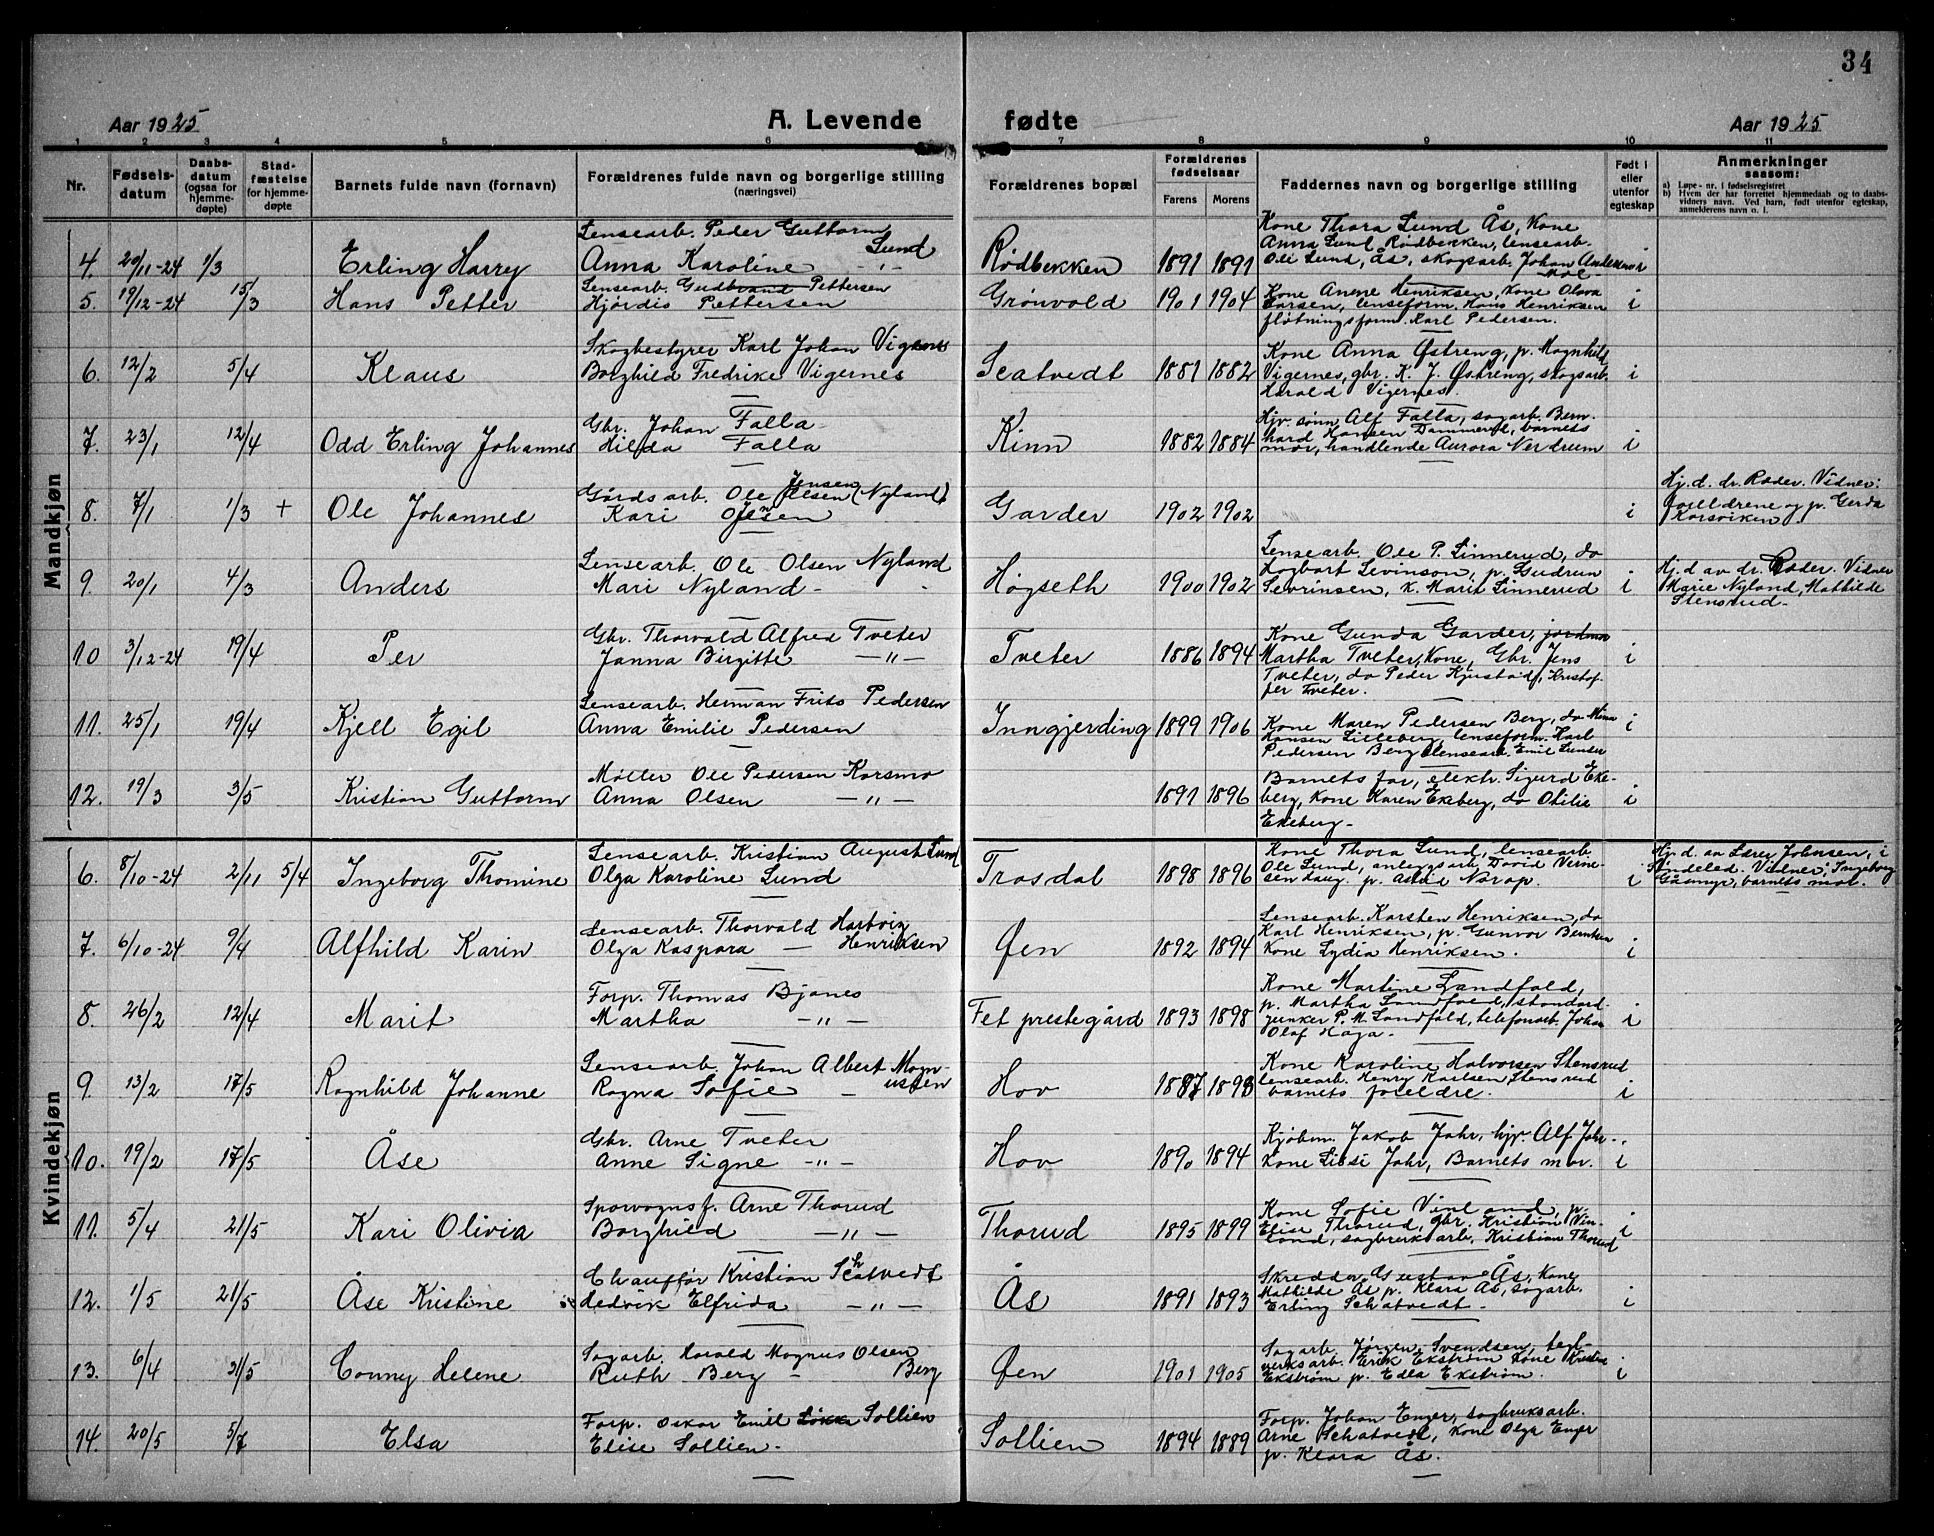 34
Aar 1925
A. Levende fødte
Aar 1925
1 2 3 4 5 6 7 8 9 10 11
Nr.
Fødselsdatum
Daabsdatum (ogsaa for hjemmedøpte)
Stadfæstelse for hjemmedøpte
Barnets fulde navn (fornavn)
Forældrenes fulde navn og borgerlige stilling
(næringsvei)
Forældrenes bopæl
Forældrenes fødselsaar
Farens Morens
Faddernes navn og borgerlige stilling
Født i eller utenfor egteskap
Anmerkninger
saasom:
a) Løpe-nr. i fødselsregistret
b) Hvem der har forrettet hjemmedaab og to daabsvidners navn. Ved barn, født utenfor egteskap, anmelderens navn o. l.
Mandkjøn
4. 20/11-24 1/3 Erling Harry
Lensearb. Peder Guttorm Lund
Anna Karoline -"-
Rødbekken 1891 1891
Kone Thora Lund Ås, Kone
Anna Lund Rødbekken, lensearb.
Ole Lund, Ås, skogsarb. Johan
i
5. 19/12-24 15/3 Hans Petter
Lensearb. Gudbrand Pettersen
Hjørdis Pettersen
Grønvold 1901 1904
Kone Anne Henriksen, Kone Olava
Larsen, lenseform. Hans Henriksen
fløtningsform. Karl Pedersen.
i
6. 12/2 5/4 Klaus
Skogbestyrer Karl Johan Vigernes
Borghild Fredrike Vigernes
Scatvedt 1881 1882
Kone Anna Østreng, p. Magnhild
Vigernes, gbr. K. J. Østreng, skogsarb.
Harald Vigernes.
i
7. 23/1 12/4 Odd Erling Johannes
Gbr. Johan Falla
Hilda Falla
Kinn 1882 1884
Hjv. sønn Alf Falla, sagarb. Bern-
hard Hansen Dammerud, barnets
mor, handlende Aurora Nerdrum
i
8. 7/1 1/3 + Ole Johannes
Gårdsarb. Ole Jensen (Nyland)
Kari Jensen
Garder 1902 1902
i
Hj. d. dr. Røder. Vidner:
foreldrene og p. Gerda
Korsviken
9. 20/1 4/3 Anders
Lensearb. Ole Olsen Nyland
Mari Nyland -
Høgseth 1900 1902
Lensearb. Ole P. Linnerud, do
Levinson, p. Gudrun
Sevrinsen, k. Marit Linnerud
i
Hj. d av dr. Røder. Vidner
Marie Nyland, Mathilde
Stensrud.
10 3/12-24 19/4 Per
Gbr. Thorvald Alfred Tveter
Janna Birgitte -"-
Tveter 1886 1894
Kone Gunda Garder, jordmor
Martha Tveter, Kone, Gbr. Jens
Tveter, do Peder Kjustad, Kristof-
fer Tveter.
i
11. 25/1 19/4 Kjell Egil
Lensearb. Herman Frits Pedersen
Anna Emilie Pedersen
Inngjerding 1899 1906
Kone Maren Pedersen Berg, do Mina
Hansen Lilleberg, lenseform. Karl
Pedersen Berg, lensearb. Emil
i
12. 19/3 3/5 Kristian Guttorm
Møller Ole Pedersen Korsmo
Anna Olsen -"-
1891 1896
Barnets far, elektr. Sigurd Eke-
berg, Kone Karen Ekeberg, do Otilie
Ekeberg -
i
Kvindekjøn
6. 8/10-24 2/11 5/4 Ingeborg Thomine
Lensearb. Kristian August Lund
Olga Karoline Lund
Trosdal 1898 1896
Kone Thora Lund, lensearb.
Ole Lund, anlegsarb. David
p. Norop.
i
Hj. d. av Lærer Johnsen, i
Søndeled. Vidner: Ingeborg
Gåsmyr, barnets mor.
7. 6/10-24 9/4 Alfhild Karin
Lensearb. Thorvald Hartvig
Olga Kaspara - Henriksen
Øen 1892 1894
Lensearb. Karsten Henriksen, do
Karl Henriksen, p. Gunvor Berntsen
Kone Lydia Henriksen.
i
8. 26/2 12/4 Marit
Forp. Thomas Bjanes
Martha -"-
Fet prestegård 1893 1898
Kone Martine Landfald,
p. Martha Landfald, standard-
junker P. M. Landfald, telefonarb. Johan
Olaf Haga.
i
9. 13/2 17/5 Ragnhild Johanne
Lensearb. Johan Albert Magn-
ussen
Ragna Sofie -
Hov 1887 1893
Kone Karoline Halvorsen Stensrud
lensearb. Henry Karlsen Stensrud
barnets foreldre.
i
10. 19/2 17/5 Åse
Gbr. Arne Tveter
Anne Signe -"-
Hov 1890 1894
Kjøbm. Jakob Jahr, hjv. Alf Jahr,
Kone Lissi Jahr, Barnets mor.
i
11. 5/4 21/5 Kari Olivia
Sporvognsf. Arne Thorud
Borghild -"-
Thorud 1895 1899
Kone Sofie Vinland, p.
Elise Thorud, gbr. Kristian Vin-
land, sagbruksarb. Kristian Thorud
i
12. 1/5 21/5 Åse Kristine
Chauffør Kristian Schatvedt
Hedvik Elfrida -"-
Ås 1891 1893
Skredder Gustav Ås, Kone
Mathilde Ås p. Klara Ås, sagarb.
Erling Schatvedt.
i
13. 6/4 21/5 Conny Helene
Sagarb. Harald Magnus Olsen
Ruth Berg - Berg
Øen 1901 1905
Sagarb. Jørgen Svendsen, tegl-
verksarb. Erik Ekstrøm Kone Kristine
Ekstrøm p. Edla Ekstrøm.
i
14. 20/5 5/7 Elsa
Forp. Oskar Emil Sollien
Elise Sollien.
Sollien 1894 1889
Forp. Johan Enger, sagbruksarb.
Arne Schatvedt, Kone Olga Enger
p. Klara Ås.